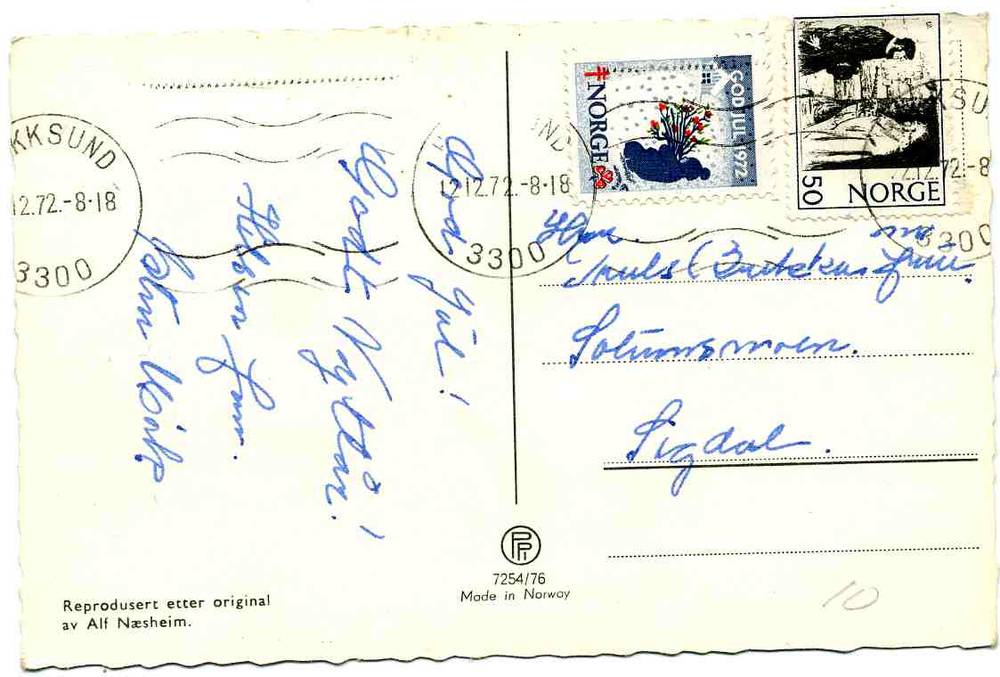 God Jul!
Godt Nyttår!
Hilsen fam.
KKSUND
12.72.-8-18
3300
ND
12.12.72.-8-18
3300
KSU
12.12.72.-8
3300
NORGE
GOD JUL 1972
50
NORGE
Herr
m.
fam.
Solumsmoen.
Sigdal.
PP
7254/76
Made in Norway
Reprodusert etter original
av Alf Næsheim.
10